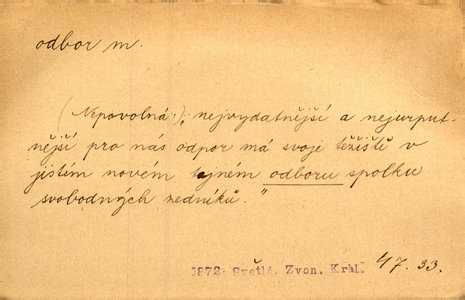 odbor m.
(Nepovolná:) nejvydatnější a nejurput-
nější pro nás odpor má svoje těžiště v
jistém novém tajném odboru spolku
svobodných zedníků."
1872: Světlá. Zvon. Král. 47. 33.